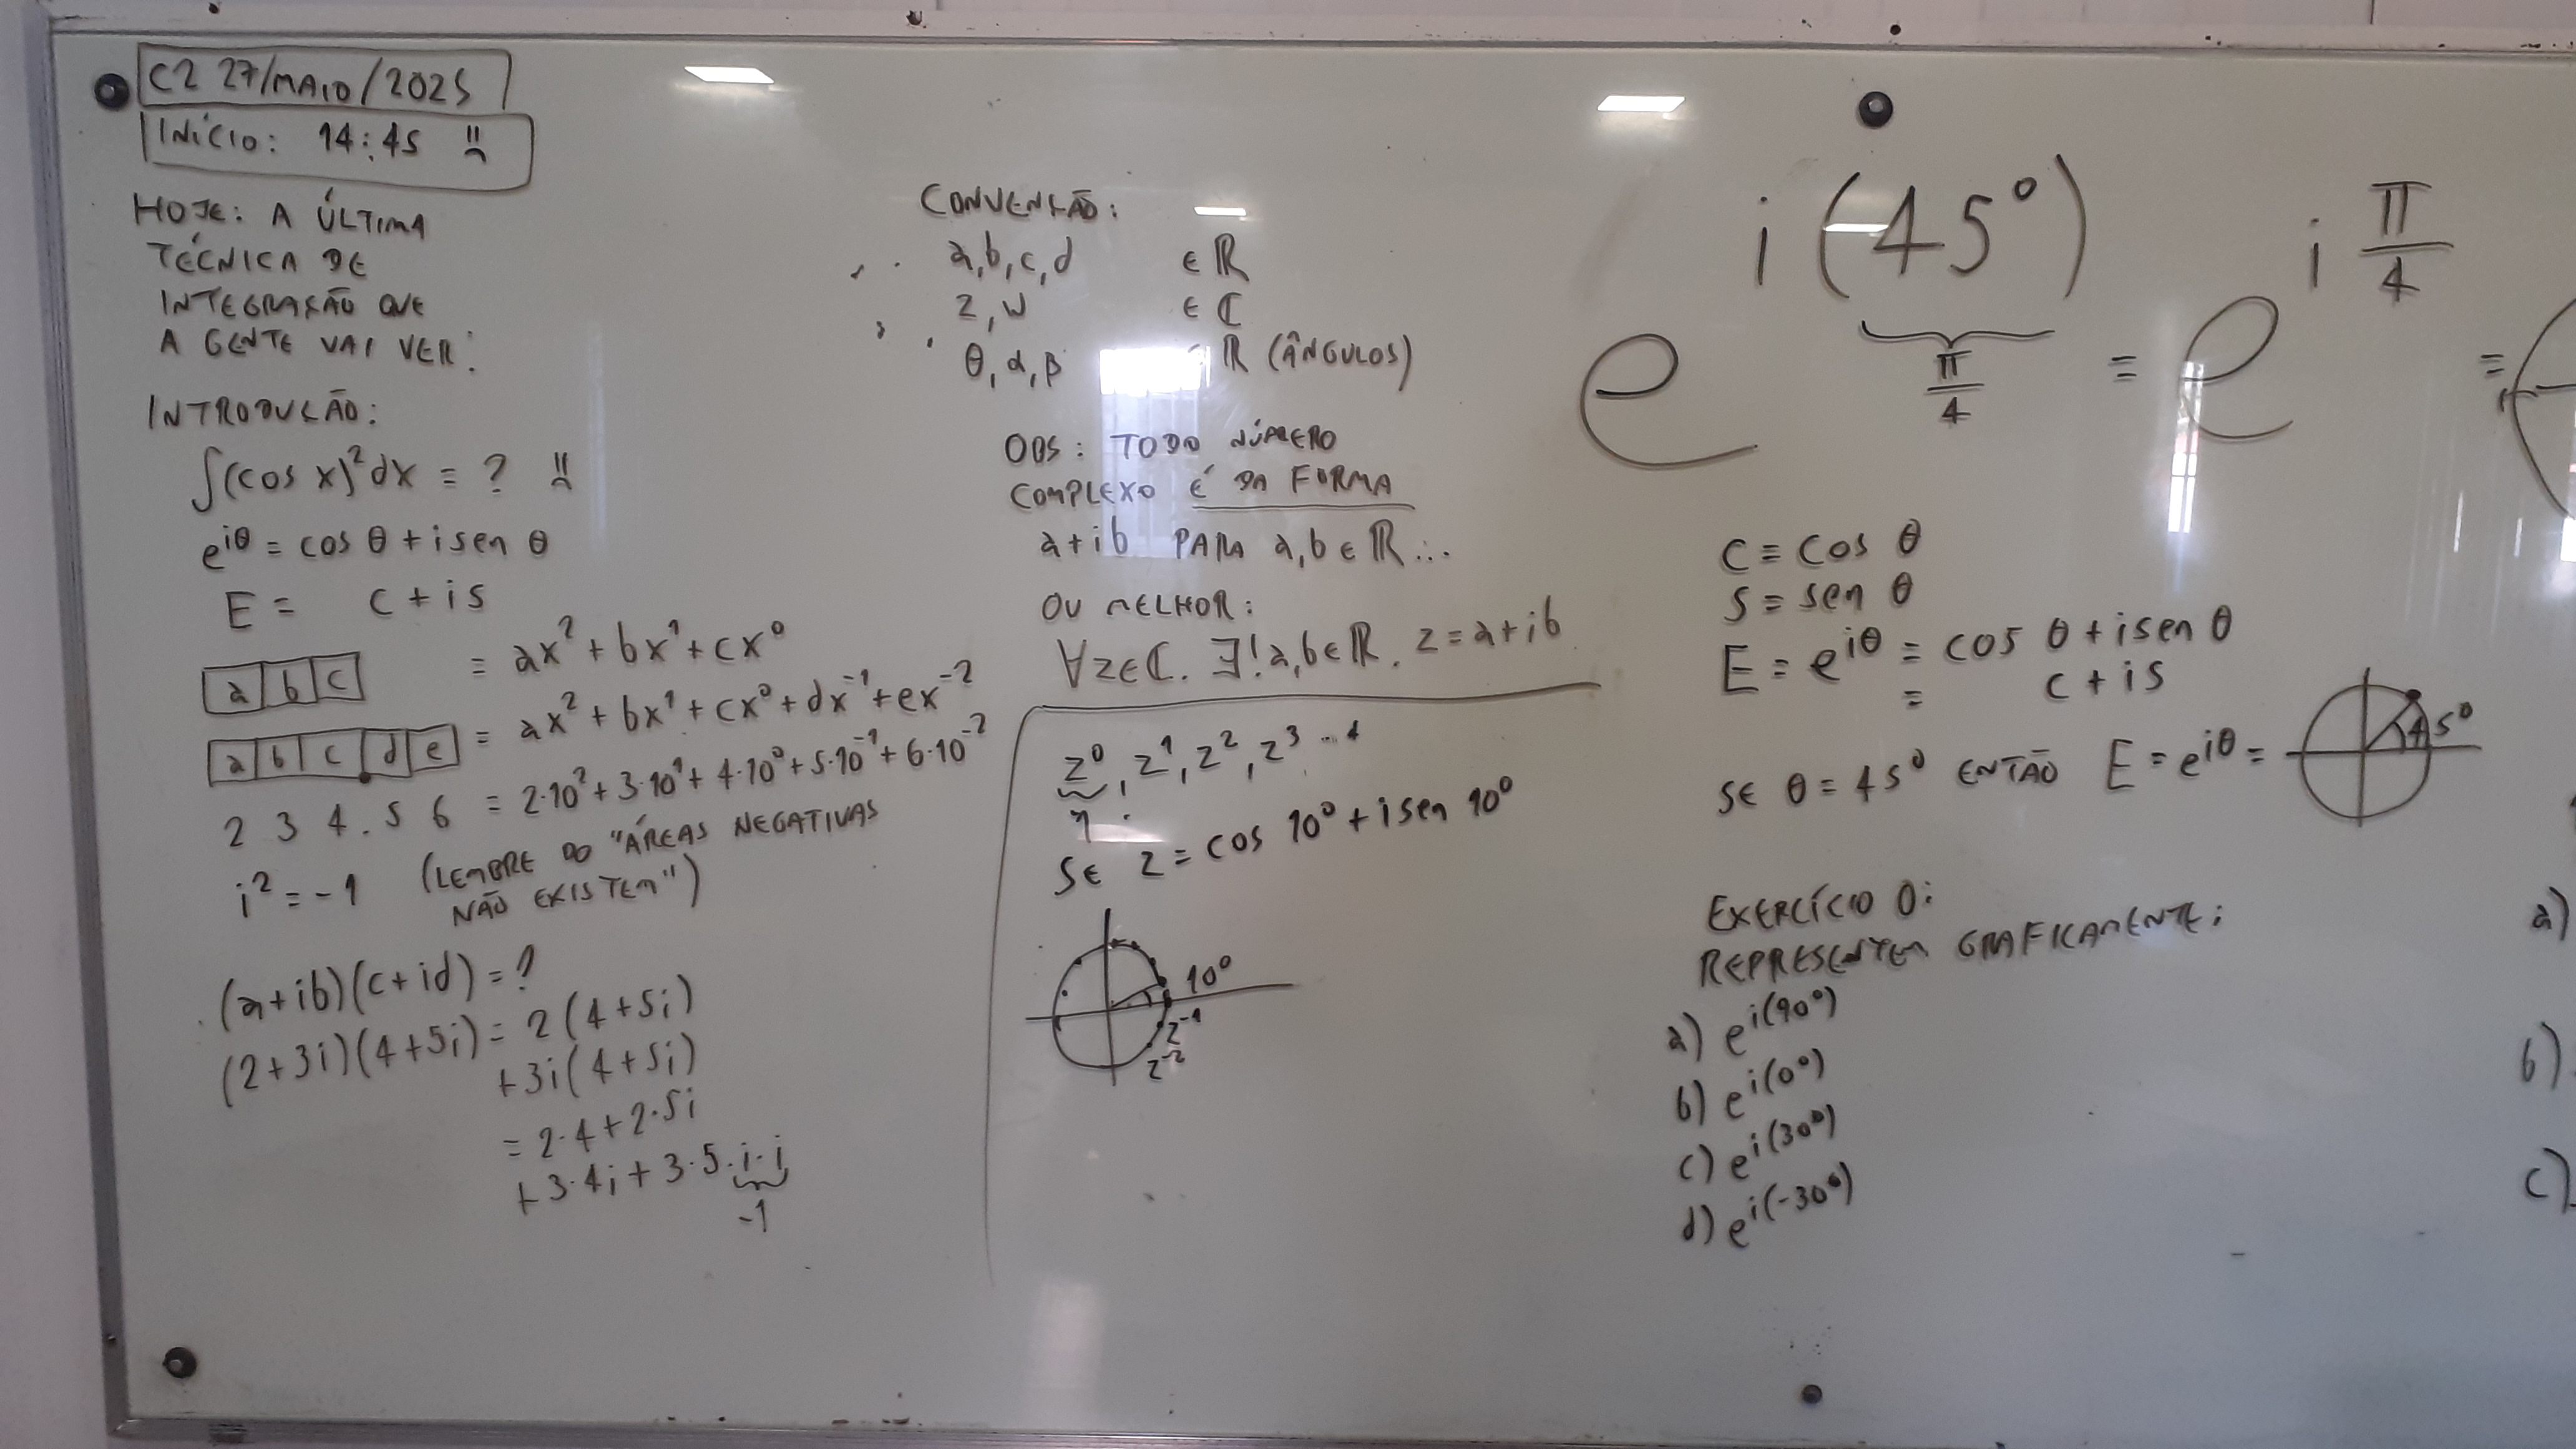 C2 27/MAIO/2025
INÍCIO: 14:45 :(
HOJE: A ÚLTIMA
TÉCNICA DE
INTEGRAÇÃO QUE
A GENTE VAI VER:
INTRODUÇÃO:
∫(cos x)²dx = ? :(
e^{iθ} = cos θ + i sen θ
E = c + is
[a|b|c] = ax² + bx¹ + cx⁰
[a|b|c.d|e] = ax² + bx¹ + cx⁰ + dx⁻¹ + ex⁻²
2 3 4 . 5 6 = 2·10² + 3·10¹ + 4·10⁰ + 5·10⁻¹ + 6·10⁻²
i² = -1 (LEMBRE DO "ÁREAS NEGATIVAS
NÃO EXISTEM")
(a+ib)(c+id) = ?
(2+3i)(4+5i) = 2(4+5i)
+3i(4+5i)
= 2·4 + 2·5i
+3·4i + 3·5·i·i
-1
CONVENÇÃO:
a,b,c,d ∈ ℝ
z,w ∈ ℂ
θ,α,β ∈ ℝ (ÂNGULOS)
OBS: TODO NÚMERO
COMPLEXO É DA FORMA
a+ib PARA a,b ∈ ℝ...
OU MELHOR:
∀z∈ℂ. ∃!a,b∈ℝ. z=a+ib
z⁰, z¹, z², z³ ...
1
SE z = cos 10° + i sen 10°
10°
z⁻¹
z⁻²
e^{i(45°)} = e^{i π/4} =
π/4
C = cos θ
S = sen θ
E = e^{iθ} = cos θ + i sen θ
= c + is
SE θ = 45° ENTÃO E = e^{iθ} =
45°
EXERCÍCIO 0:
REPRESENTEM GRAFICAMENTE:
a) e^{i(90°)}
b) e^{i(0°)}
c) e^{i(30°)}
d) e^{i(-30°)}
a)
b)
c)